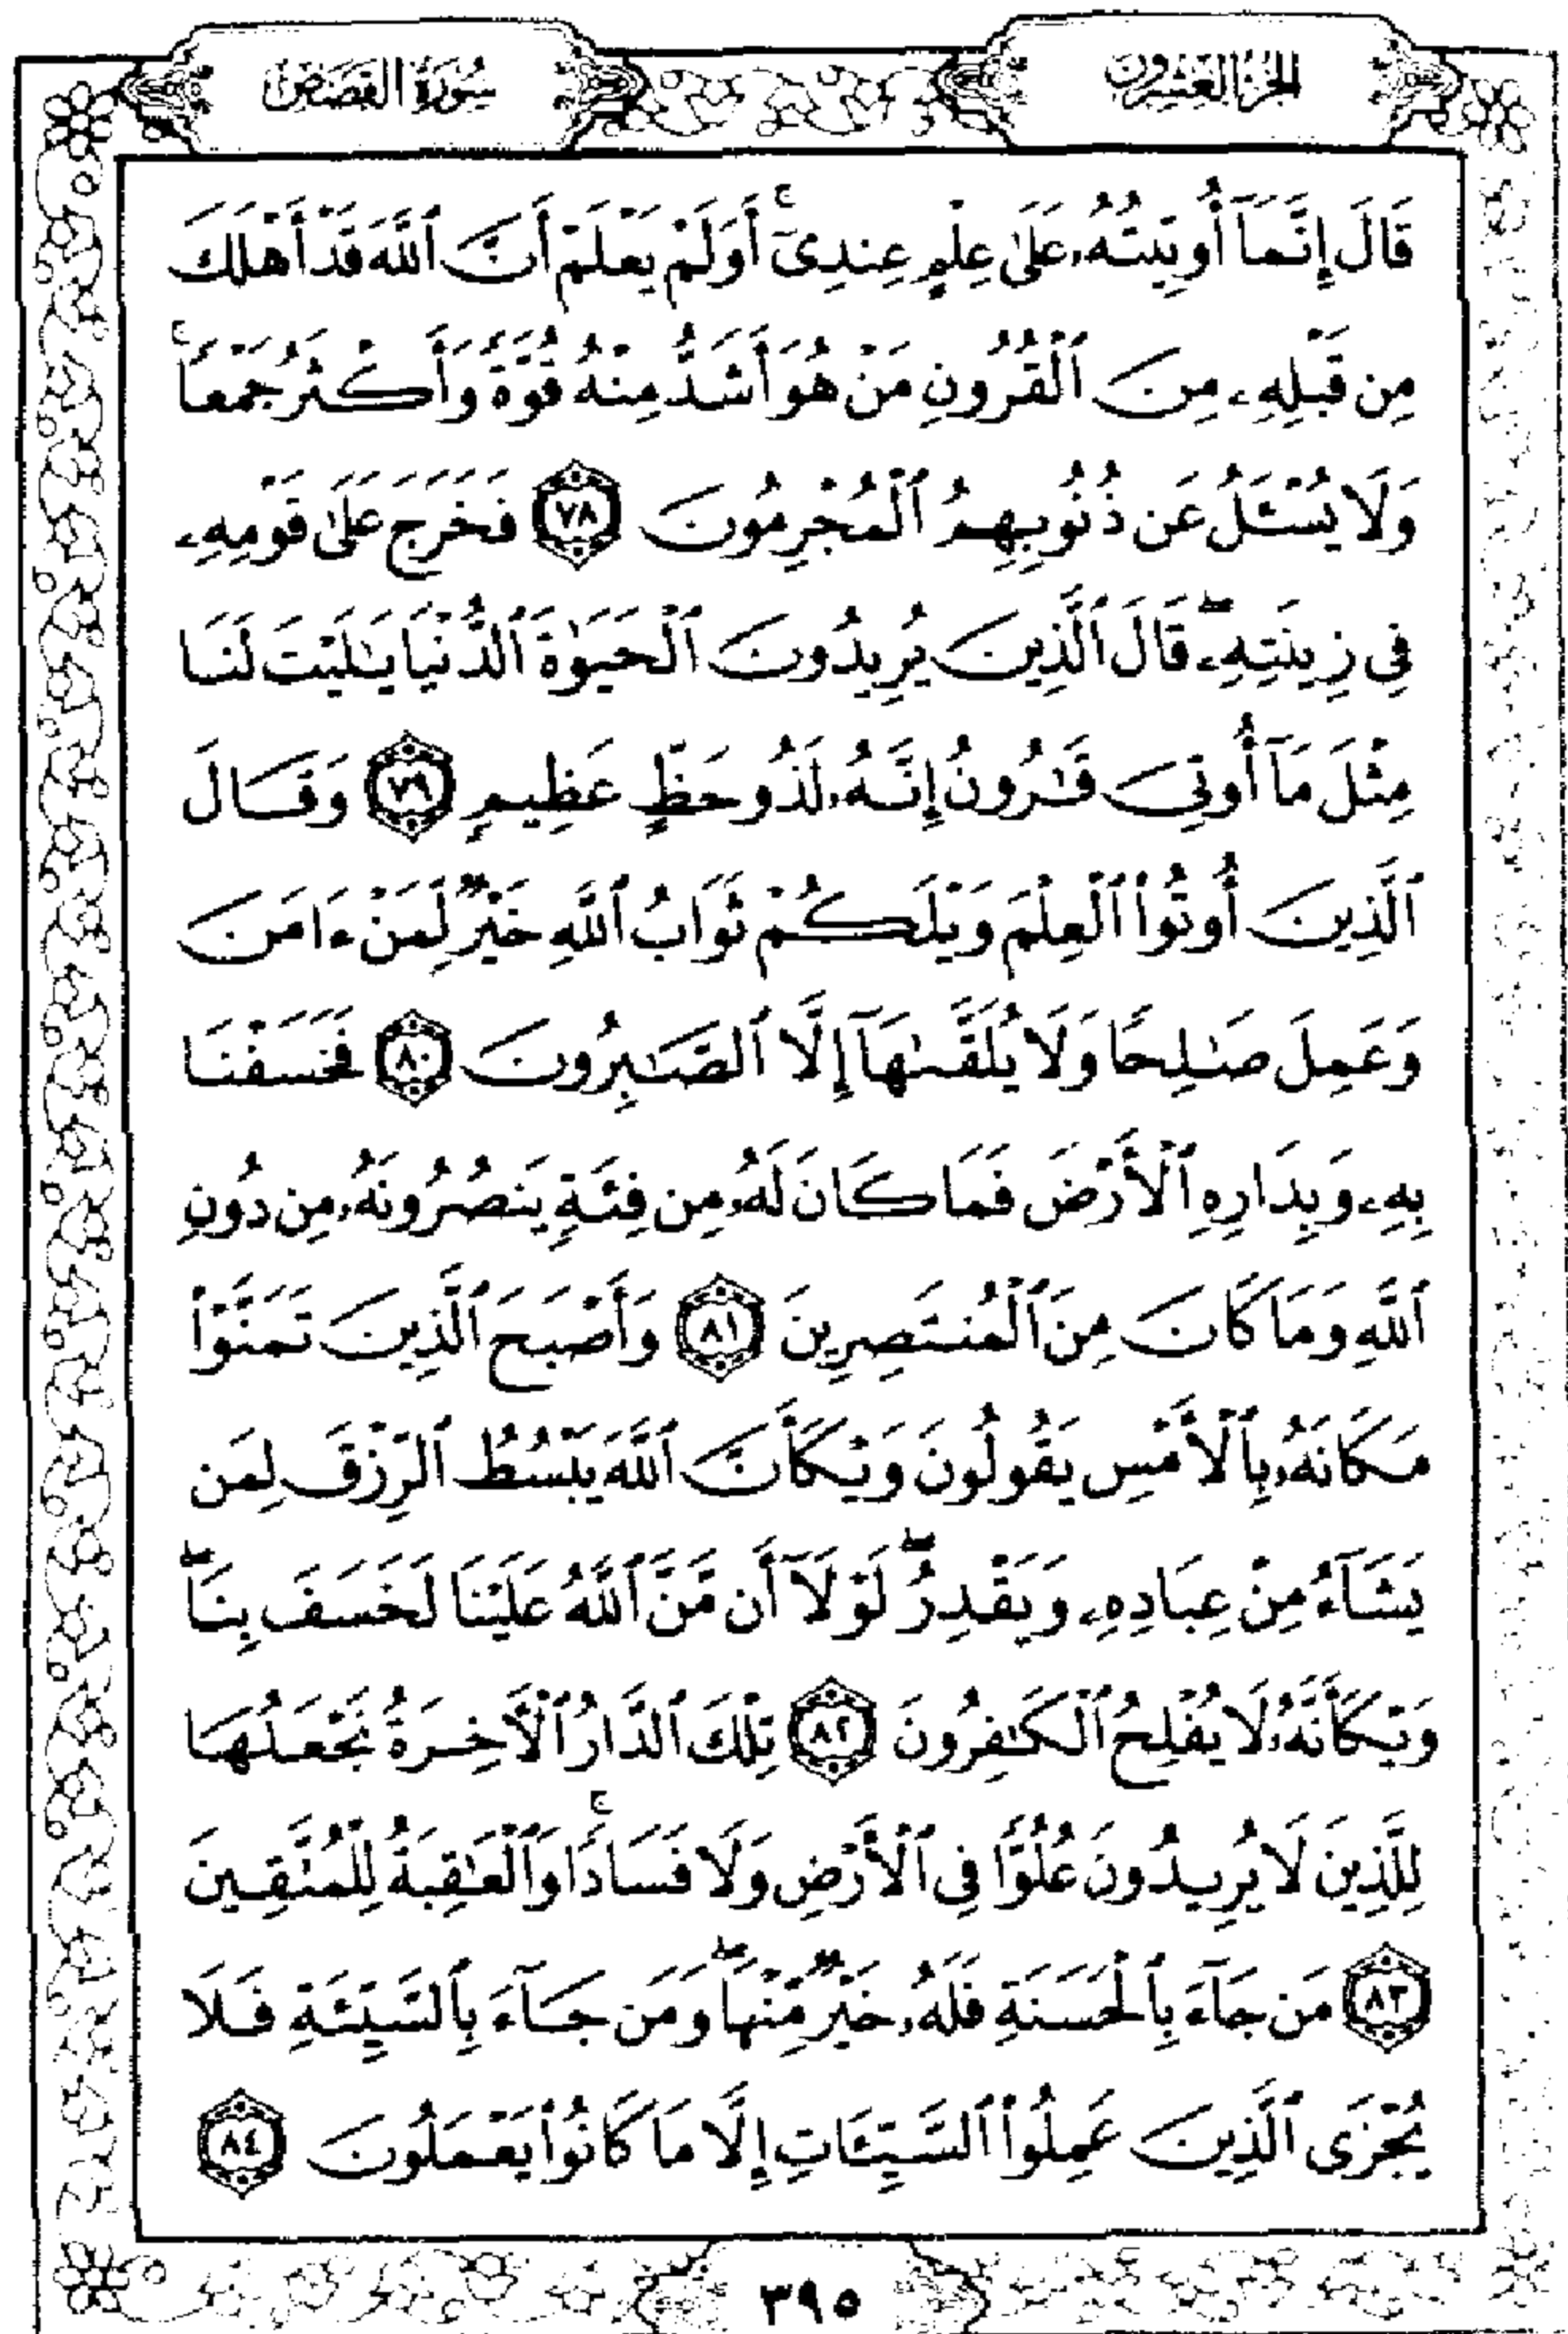 الجزء العشرون
سورة القصص
قَالَ إِنَّمَآ أُوتِيتُهُۥ عَلَىٰ عِلْمٍ عِندِىٓ ۚ أَوَلَمْ يَعْلَمْ أَنَّ ٱللَّهَ قَدْ أَهْلَكَ
مِن قَبْلِهِۦ مِنَ ٱلْقُرُونِ مَنْ هُوَ أَشَدُّ مِنْهُ قُوَّةً وَأَكْثَرُ جَمْعًا ۚ
وَلَا يُسْـَٔلُ عَن ذُنُوبِهِمُ ٱلْمُجْرِمُونَ ٧٨ فَخَرَجَ عَلَىٰ قَوْمِهِۦ
فِى زِينَتِهِۦ ۖ قَالَ ٱلَّذِينَ يُرِيدُونَ ٱلْحَيَوٰةَ ٱلدُّنْيَا يَـٰلَيْتَ لَنَا
مِثْلَ مَآ أُوتِىَ قَـٰرُونُ إِنَّهُۥ لَذُو حَظٍّ عَظِيمٍ ٧٩ وَقَالَ
ٱلَّذِينَ أُوتُوا۟ ٱلْعِلْمَ وَيْلَكُمْ ثَوَابُ ٱللَّهِ خَيْرٌ لِّمَنْ ءَامَنَ
وَعَمِلَ صَـٰلِحًا وَلَا يُلَقَّىٰهَآ إِلَّا ٱلصَّـٰبِرُونَ ٨٠ فَخَسَفْنَا
بِهِۦ وَبِدَارِهِ ٱلْأَرْضَ فَمَا كَانَ لَهُۥ مِن فِئَةٍ يَنصُرُونَهُۥ مِن دُونِ
ٱللَّهِ وَمَا كَانَ مِنَ ٱلْمُنتَصِرِينَ ٨١ وَأَصْبَحَ ٱلَّذِينَ تَمَنَّوْا۟
مَكَانَهُۥ بِٱلْأَمْسِ يَقُولُونَ وَيْكَأَنَّ ٱللَّهَ يَبْسُطُ ٱلرِّزْقَ لِمَن
يَشَآءُ مِنْ عِبَادِهِۦ وَيَقْدِرُ ۖ لَوْلَآ أَن مَّنَّ ٱللَّهُ عَلَيْنَا لَخَسَفَ بِنَا ۖ
وَيْكَأَنَّهُۥ لَا يُفْلِحُ ٱلْكَـٰفِرُونَ ٨٢ تِلْكَ ٱلدَّارُ ٱلْأَخِرَةُ نَجْعَلُهَا
لِلَّذِينَ لَا يُرِيدُونَ عُلُوًّا فِى ٱلْأَرْضِ وَلَا فَسَادًا ۚ وَٱلْعَـٰقِبَةُ لِلْمُتَّقِينَ
٨٣ مَن جَآءَ بِٱلْحَسَنَةِ فَلَهُۥ خَيْرٌ مِّنْهَا ۖ وَمَن جَآءَ بِٱلسَّيِّئَةِ فَلَا
يُجْزَى ٱلَّذِينَ عَمِلُوا۟ ٱلسَّيِّـَٔاتِ إِلَّا مَا كَانُوا۟ يَعْمَلُونَ ٨٤
٣٩٥